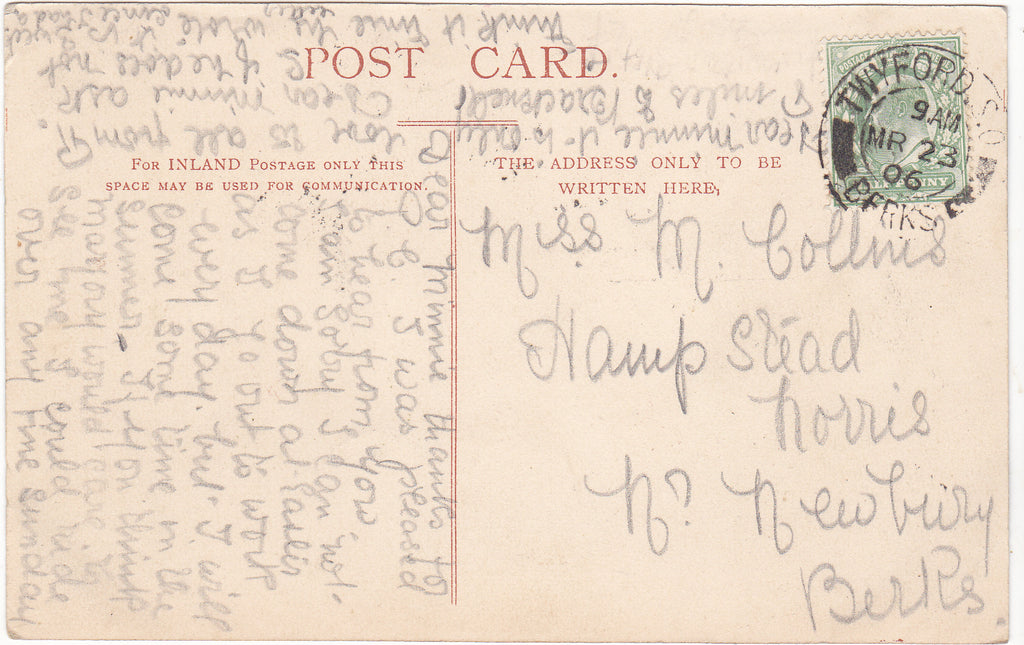 POST CARD.
FOR INLAND POSTAGE ONLY THIS
SPACE MAY BE USED FOR COMMUNICATION.
THE ADDRESS ONLY TO BE
WRITTEN HERE,
TWYFORD S.O.
9 AM
MR 23
06
BERKS
POSTAGE
Miss M. Collins
Hampstead
Norris
Nr Newbury
Berks.
Dear Minnie thanks to
P.C. I was pleased
to hear from you
I am sorry I can not
come down a Easter
as I go out to work
every day. but I will
come some time in the
summer. If you think
mayory would care to
see me I could ride
over any fine Sunday
love to all from
Dear Minnie ask
if he does not
think it time he wrote
Dear Minnie it is only
miles to Bracknell